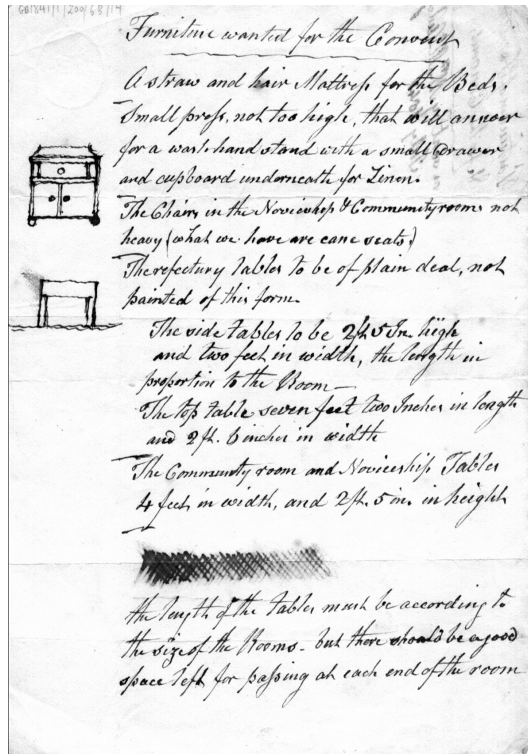 GB1841/1/200/63/14
Furniture wanted for the Convent
A straw and hair Mattress for the Beds.
Small press, not too high, that will answer
for a wash hand stand with a small Drawer
and cupboard underneath for Linen.
The Chairs in the Noviceship & Community rooms not
heavy (what we have are cane seats)
The refectory tables to be of plain deal, not
painted of this form.
The side tables to be 2ft 5 In. high
and two feet in width, the length in
proportion to the Room —
The top table seven feet two Inches in length
and 2 ft. 6 inches in width
The Community room and Noviceship Tables
4 feet in width, and 2 ft. 5 in. in height
the length of the tables must be according to
the size of the Rooms - but there should be a good
space left for passing at each end of the room